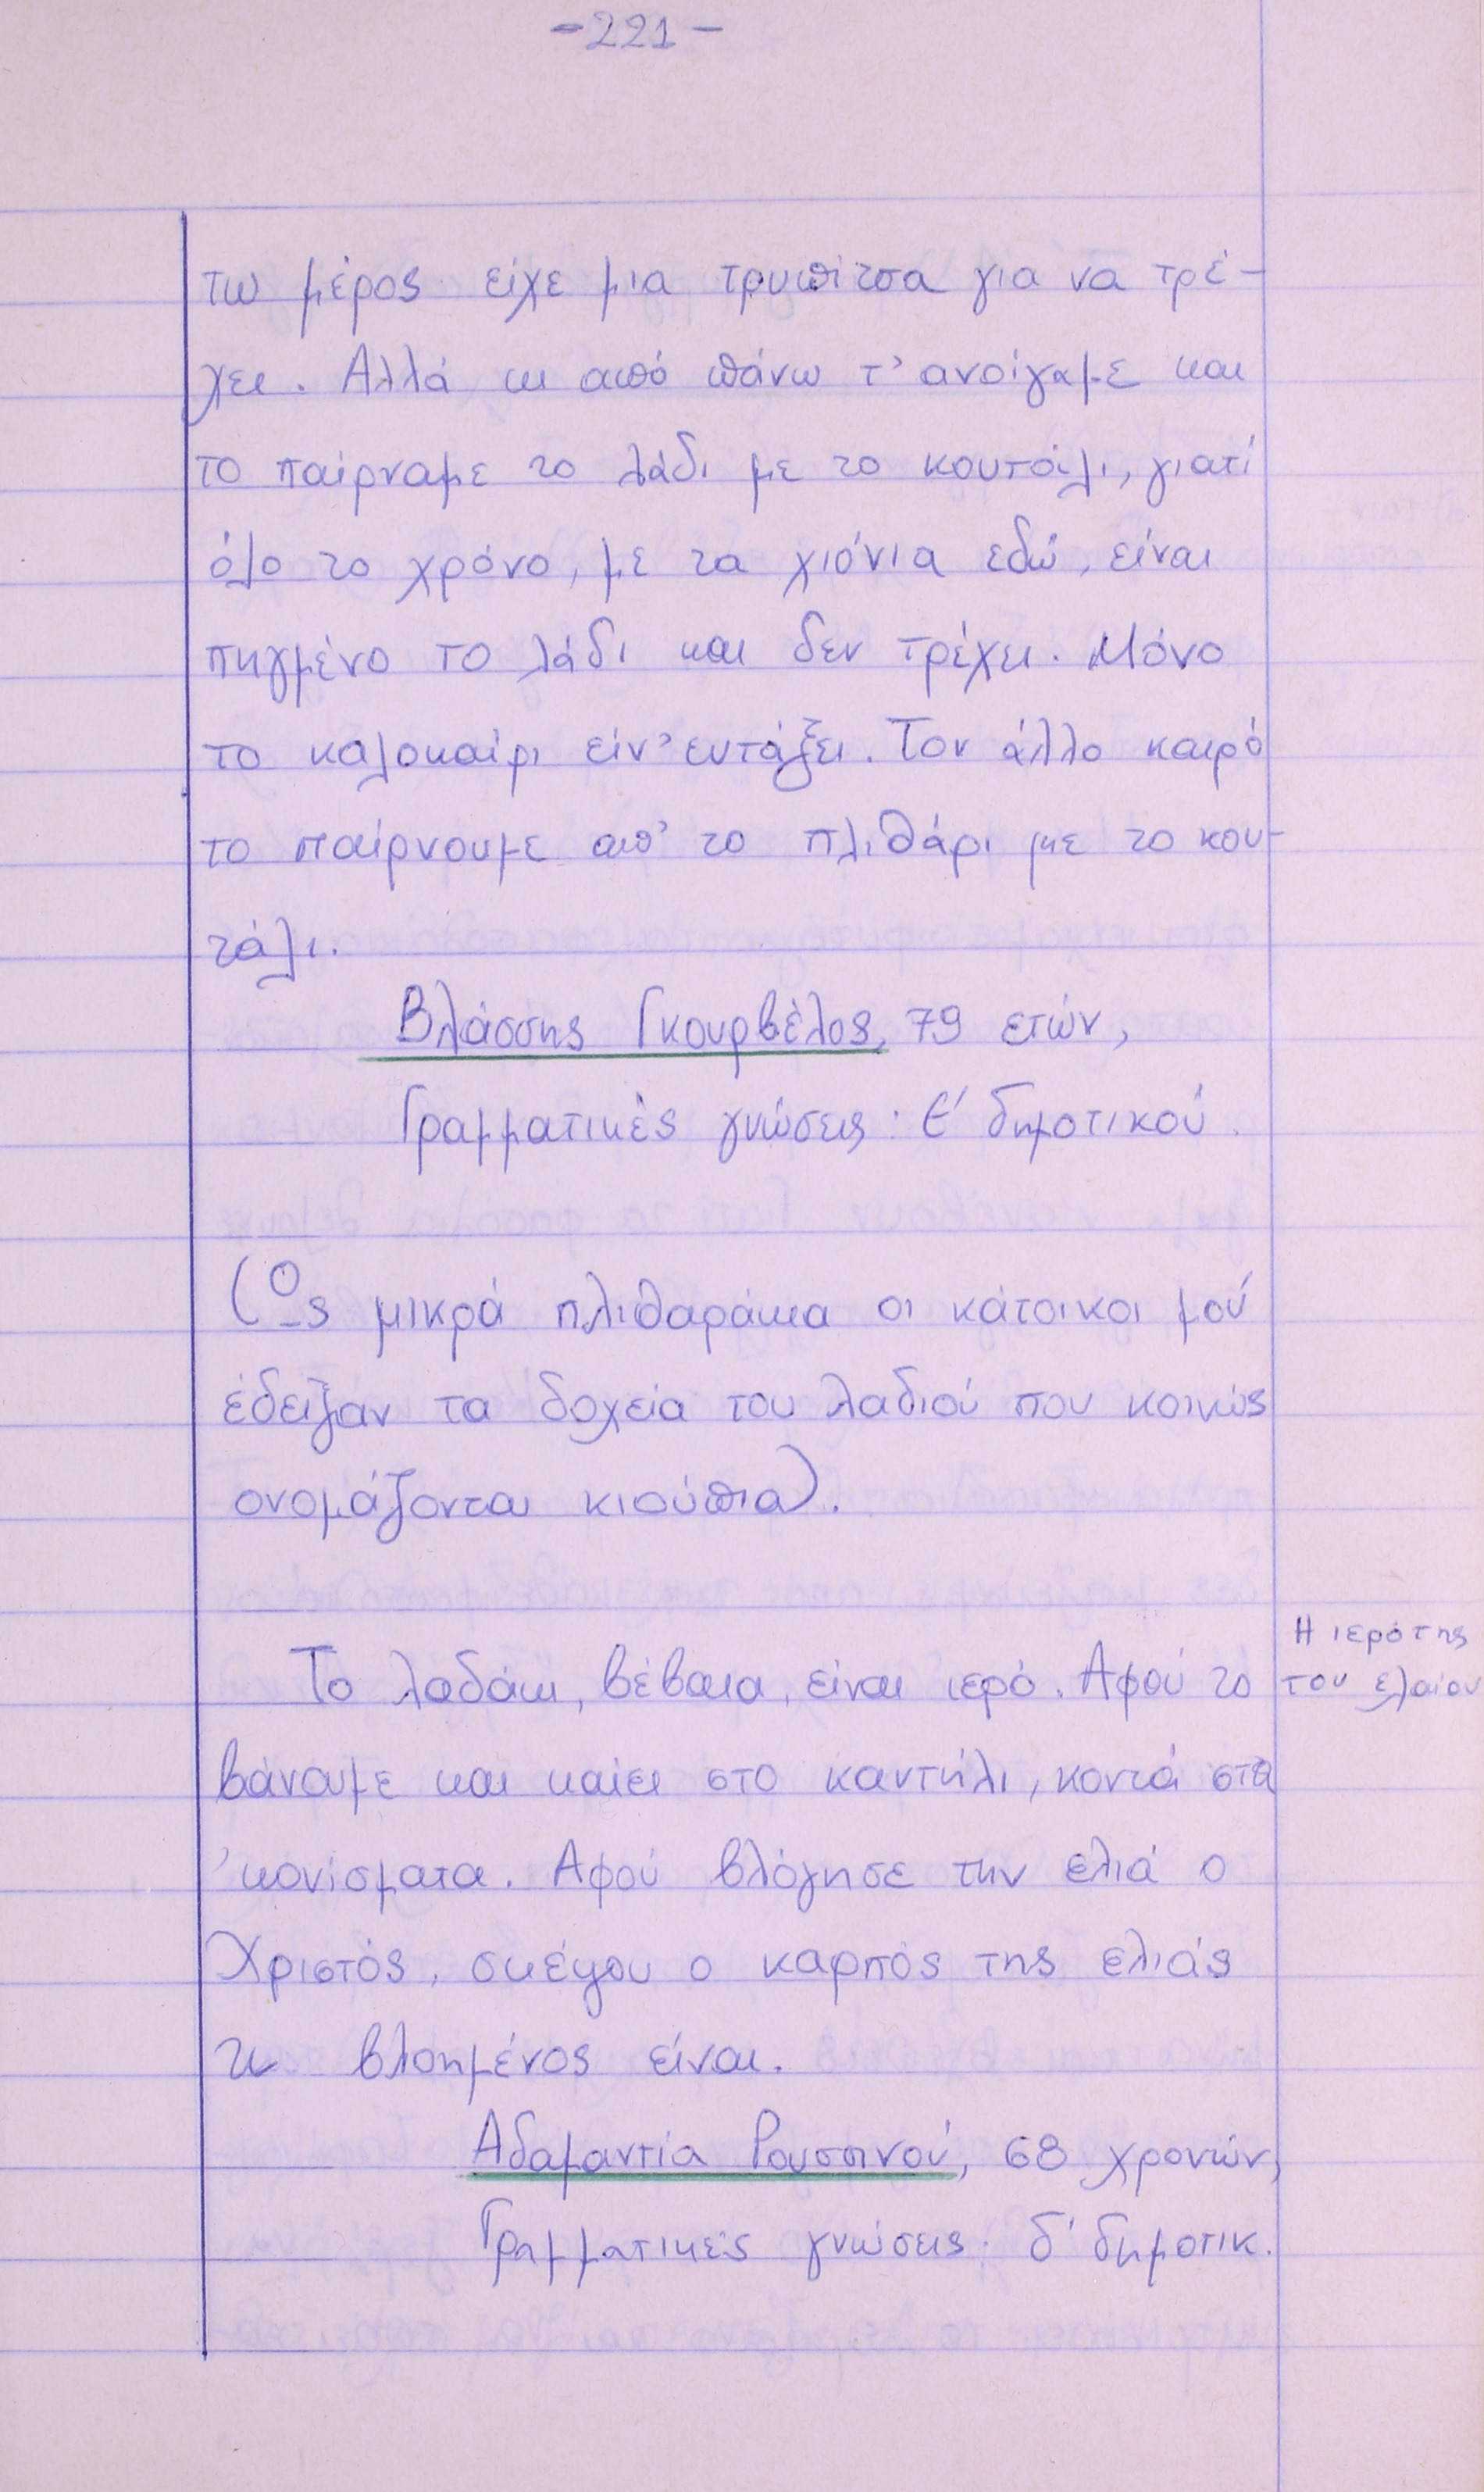 -221-
τω μέρος είχε μια τρυπίτσα για να τρέ-
χει. Αλλά κι από πάνω τ' ανοίγαμε και
το παίρναμε το λάδι με το κουτάλι, γιατί
όλο το χρόνο, με τα χιόνια εδώ, είναι
πηγμένο το λάδι και δεν τρέχει. Μόνο
το καλοκαίρι είν' εντάξει. Τον άλλο καιρό
το παίρνουμε απ' το πλιθάρι με το κου-
τάλι.
Βλάσσης Γκουρβέλος, 79 ετών,
Γραμματικές γνώσεις: Ε' δημοτικού.
(Ως μικρά πλιθαράκια οι κάτοικοι μού
έδειξαν τα δοχεία του λαδιού που κοινώς
ονομάζονται κιούπια).
Το λαδάκι, βέβαια, είναι ιερό. Αφού το
βάνουμε και καίει στο καντήλι, κοντά στα
'κονίσματα. Αφού βλόγησε την ελιά ο
Χριστός, σκέψου ο καρπός της ελιάς
τι βλοημένος είναι.
Αδαμαντία Ρουσσινού, 68 χρονών,
Γραμματικές γνώσεις: δ' δημοτικ.
Η ιερότης
του ελαίου